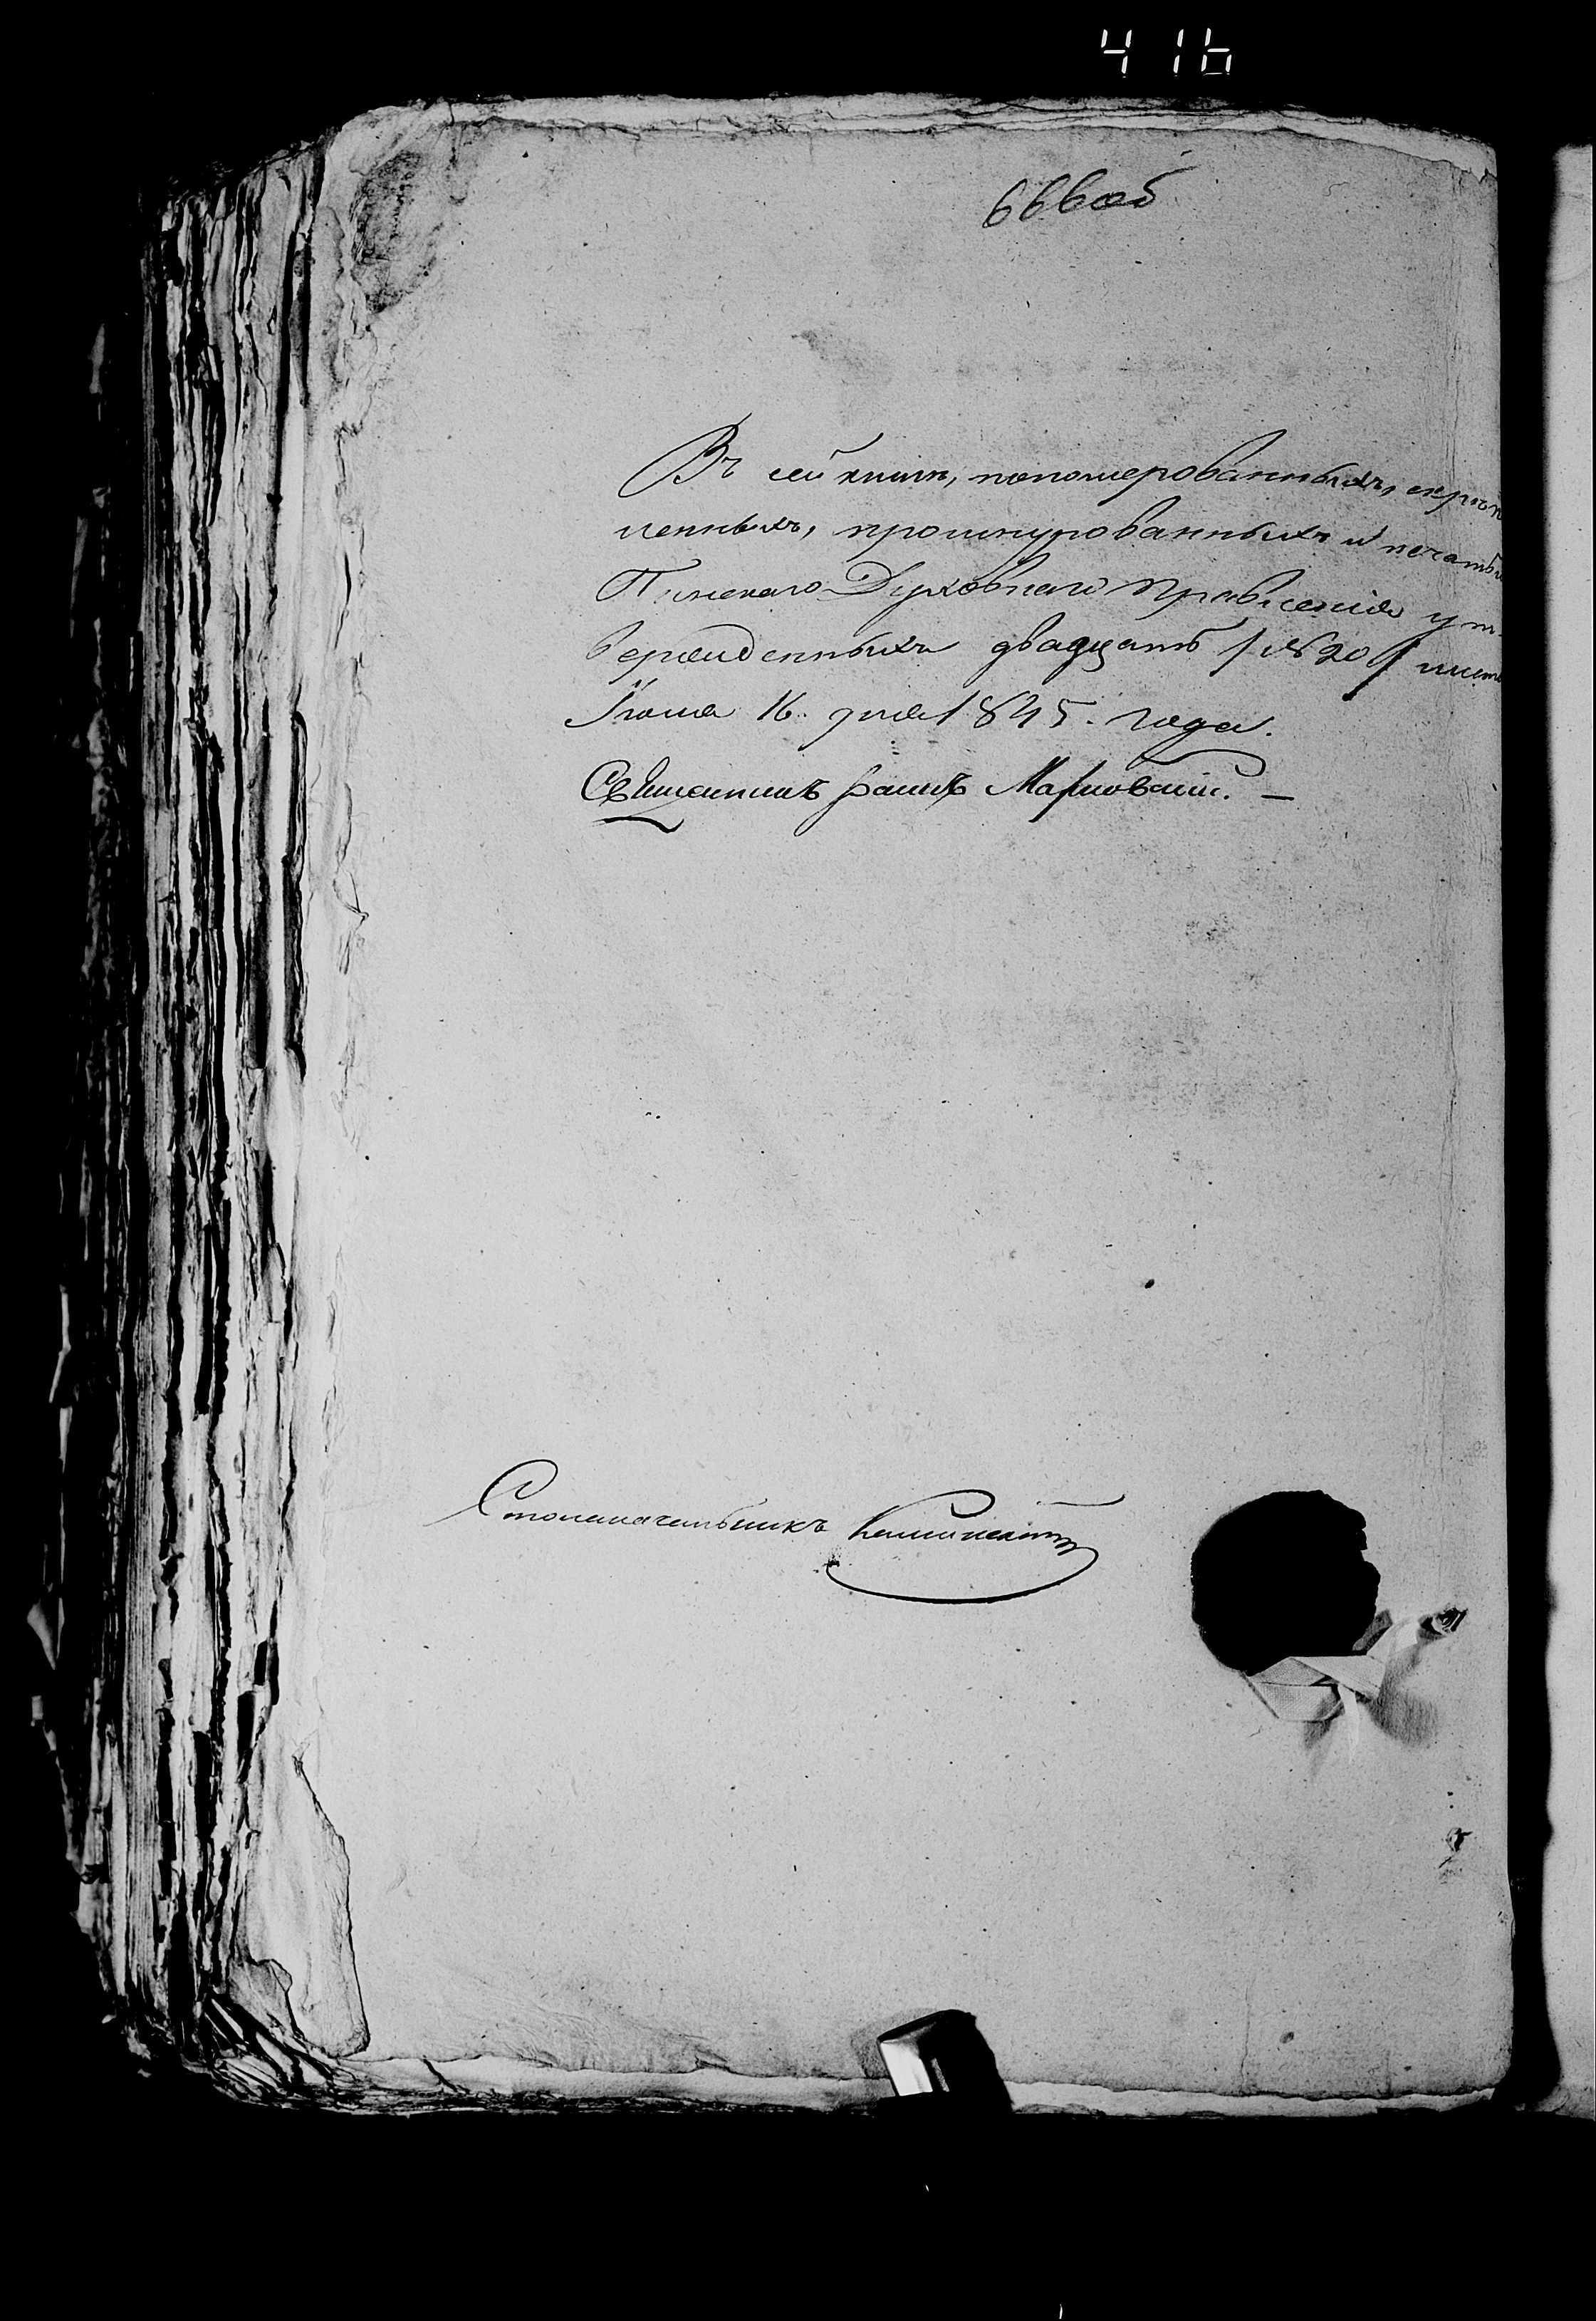 416
666об
Въ сей книгѣ, пономерованныхъ, скрѣп
ленныхъ, прошнурованныхъ и печатью
Пинскаго Духовнаго Правленія ут-
вержденныхъ двадцать /№ 20/ лист
Іюля 16. дня 1845. года.
Священникъ Марковскій. —
Столоначальникъ